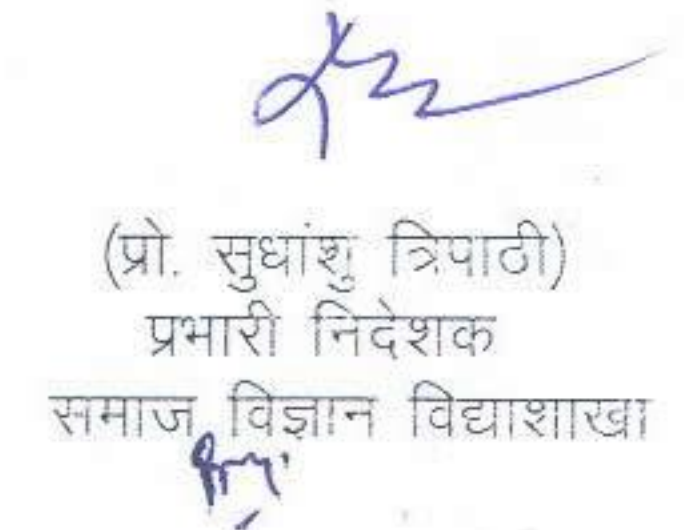 (प्रो. सुधांशु त्रिपाठी)
प्रभारी निदेशक
समाज विज्ञान विद्याशाखा